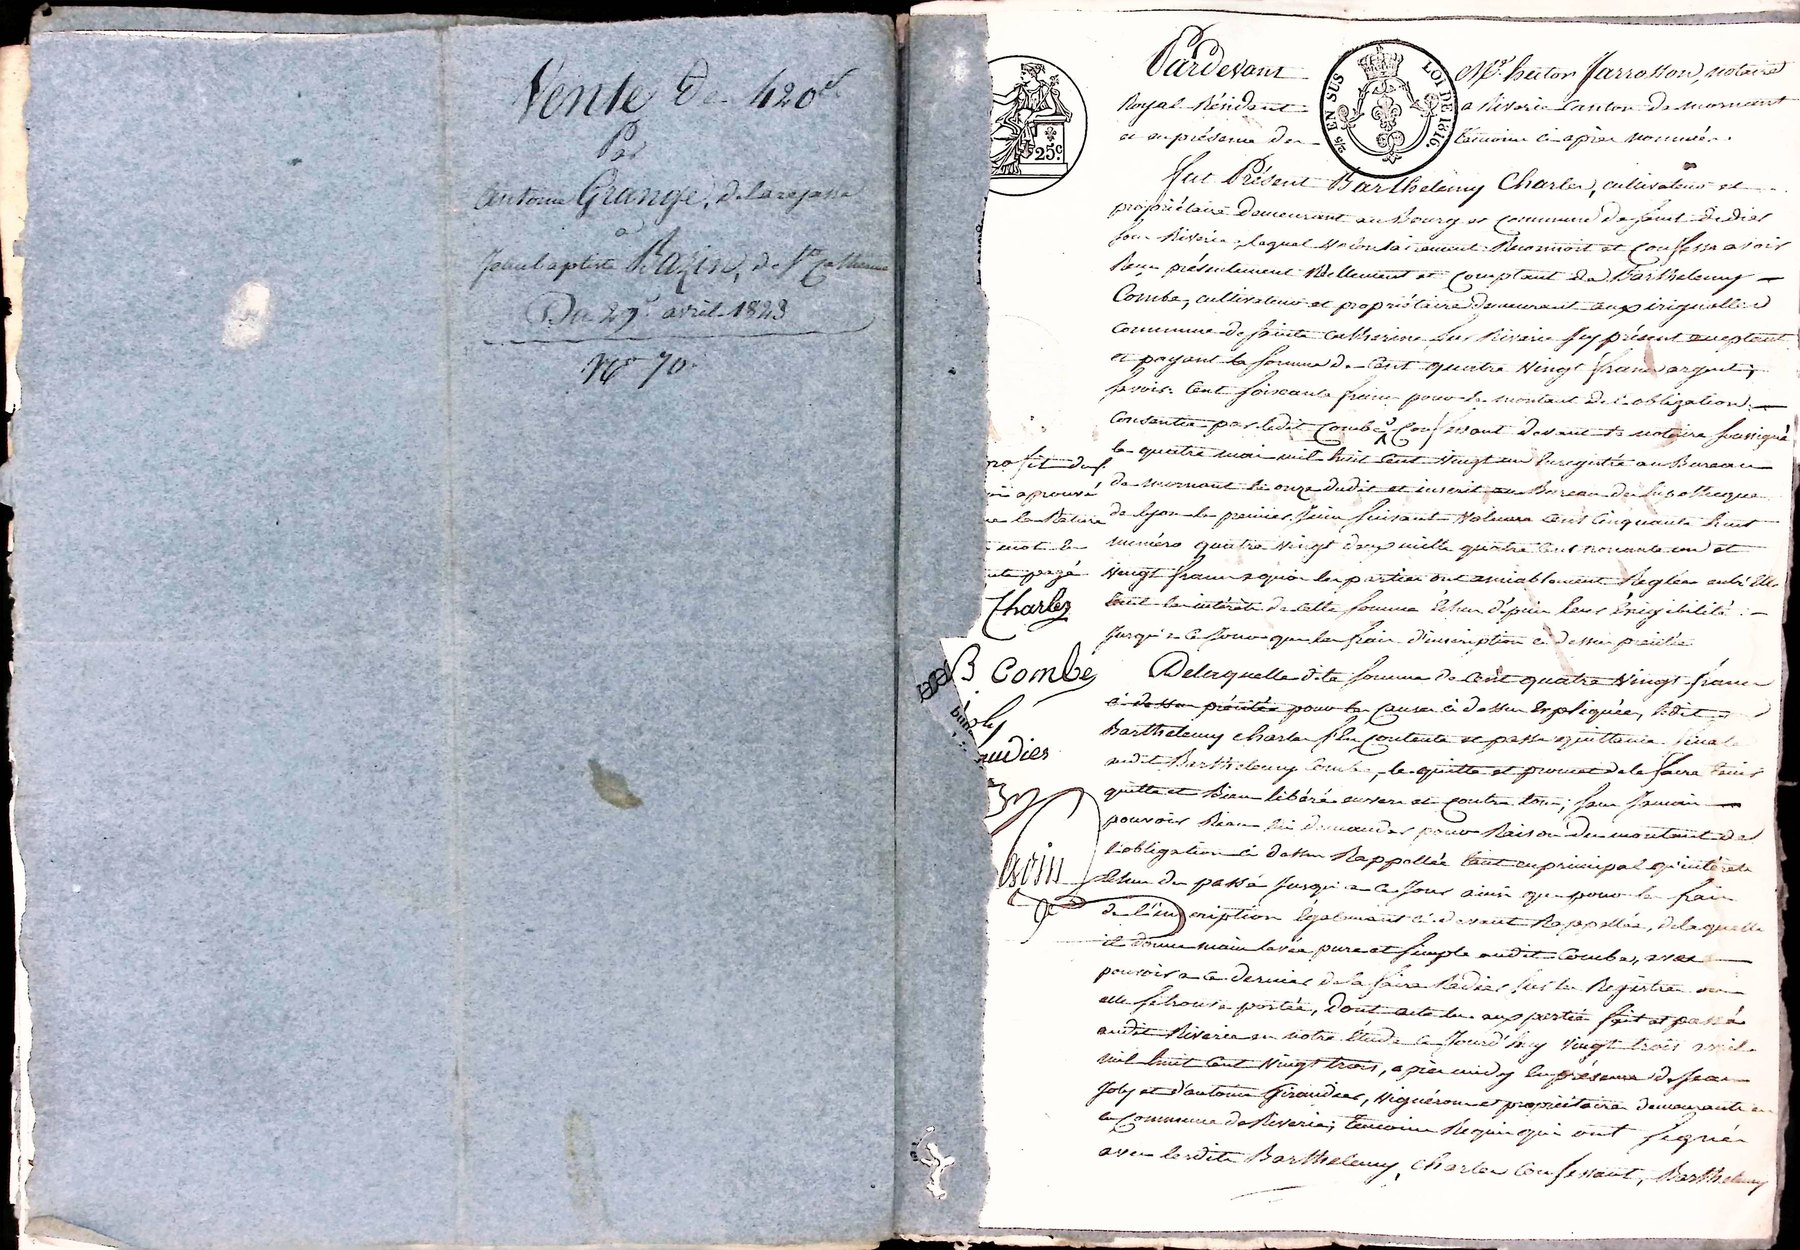 Vente de 420f
Par
antoine Grange, de larajasse
a
Jean baptiste Bazin, de Ste Catherine
Du 29 avril 1823
No 70
25c.
EN SUS LOI DE 1816.
Pardevant Me hector Jarrosson, notaire
Royal Résidant a Riverie Canton de mornant
et en présence des témoins ci après nommés.
fut Présent Barthelemy Charles, cultivateur et
propriétaire demeurant au Bourg et Commune de Saint didier
sous Riverie, lequel volontairement Reconnoit et Confesse avoir
Reçu présentement Réellement et Comptant de Barthelemy
Combe, cultivateur et propriétaire demeurant
commune de Sainte Catherine sur Riverie icy présent acceptant
et payant la somme de Cent quatre vingt francs argent,
savoir: Cent soixante francs pour le montant de l'obligation
Consentie par ledit Combe Confessant devant le notaire soussigné
le quatre mai mil huit cent vingt un Enregistré au Bureau
de mornant le onze dudit et inscrit au Bureau des hypotheques
de Lyon le premier Juin suivant volume Cent Cinquante huit
numéro quatre vingt deux mille quatre cent nonante un et
vingt francs a quoi les parties ont amiablement Réglés entr'Elles
tant les intérêts de cette somme échus dépuis leur éxigibilité
Jusqu'a ce Jour que les frais d'inscription ci dessus précités
Delaquelle dite somme de cent quatre vingt francs
ci dessus précitée pour les causes ci dessus Expliquées, ledit
Barthelemy Charles s'En Contente et passe quittance finale
audit Barthelemy Combe, le quitte et promet de le faire tenir
quitte et Bien libéré envers et Contre tous; sans Jamais
pouvoir Rien lui demander pour Raison du montant de
l'obligation ci dessus Rappellée tant en principal qu'intérêts
échus du passé Jusqu'a ce Jour ainsi que pour les frais
de l'inscription Egalement ci devant Rappellée, de laquelle
il donne main levée pure et simple audit Combe, avec
pouvoir a ce dernier de la faire Radier sur les Registres ou
elle se trouve portée, Dont acte lu aux parties fait et passé
audit Riverie en notre Etude ce Jourd'huy vingt trois avril
mil huit cent vingt trois, après midy En présence de Jean
Joly et d'antoine Giraudier, vignerons et propriétaires demeurants en
la Commune de Riverie; témoins Requis qui ont signés
avec lesdits Barthelemy, Charles Confessant, Barthelemy
rofit du
approuvé
mot
Charles
B Combe
joly
audier